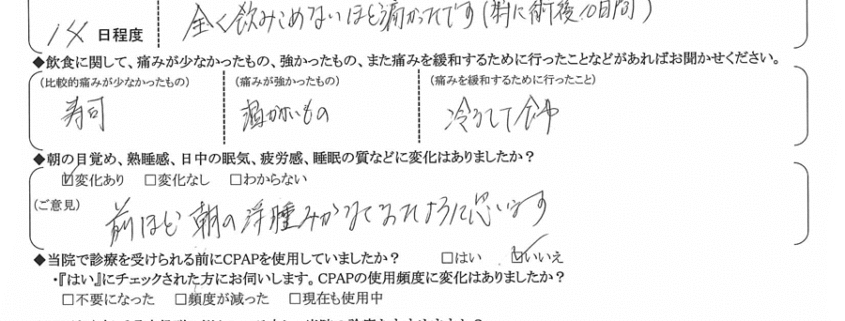 14 日程度 全く飲みこめないほど痛かったです(特に術後10日間)
◆飲食に関して、痛みが少なかったもの、強かったもの、また痛みを緩和するために行ったことなどがあればお聞かせください。
(比較的痛みが少なかったもの) (痛みが強かったもの) (痛みを緩和するために行ったこと)
寿司 温かいもの 冷まして食事
◆朝の目覚め、熟睡感、日中の眠気、疲労感、睡眠の質などに変化はありましたか?
☑変化あり □変化なし □わからない
(ご意見) 前ほど 朝の浮腫みが ように思います
◆当院で診療を受けられる前にCPAPを使用していましたか? □はい ☑いいえ
・『はい』にチェックされた方にお伺いします。CPAPの使用頻度に変化はありましたか?
□不要になった □頻度が減った □現在も使用中